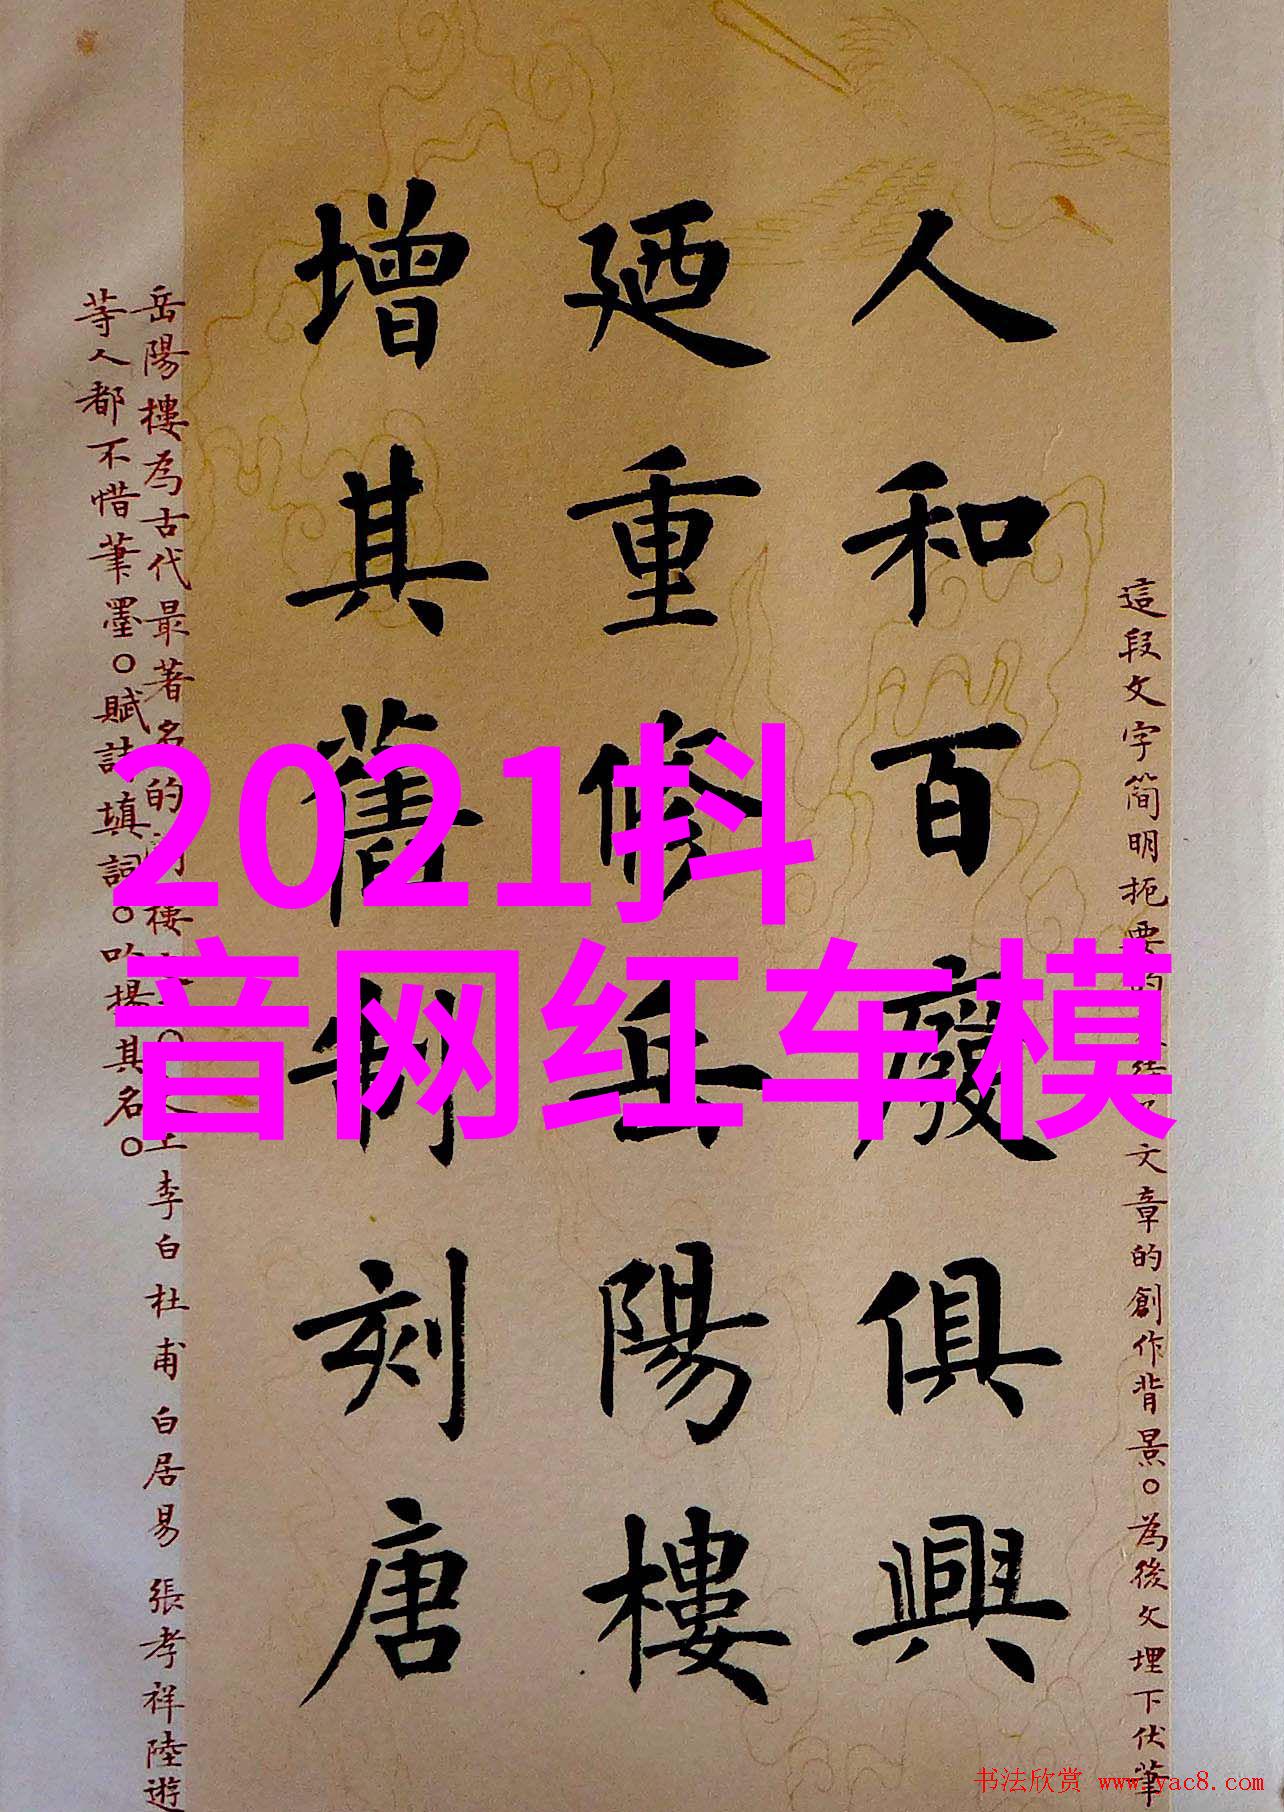 這段文字简明扼要的文章的創作背景。為後文埋下伏筆
人和百廢俱興
廼重修岳陽樓
增其舊制刻唐
岳陽樓為古代最著名的樓李白杜甫白居易張孝祥陸遊
等人都不惜筆墨。賦詩填詞。揚其名。
2021抖
音网红车模
书法欣赏 www.yac8.com